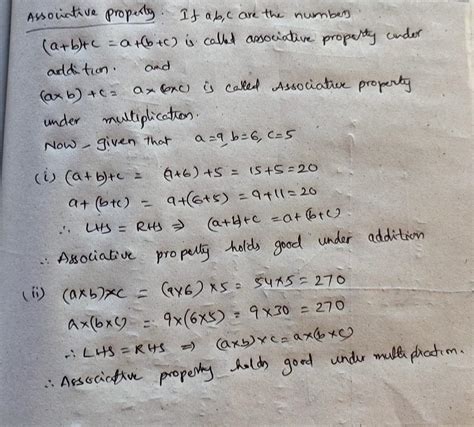 Associative property. If a,b,c are the numbers
(a+b)+c = a+(b+c) is called associative property under
addition. and
(a×b)+c = a×(b×c) is called Associative property
under multiplication.
Now, given that a=9, b=6, c=5
(i) (a+b)+c = (9+6)+5 = 15+5=20
a+(b+c) = 9+(6+5) = 9+11=20
∴ LHS = RHS ⇒ (a+b)+c = a+(b+c)
∴ Associative property holds good under addition
(ii) (a×b)×c = (9×6)×5 = 54×5 = 270
a×(b×c) = 9×(6×5) = 9×30 = 270
∴ LHS = RHS ⇒ (a×b)×c=a×(b×c)
∴ Associative property holds good under multiplication.